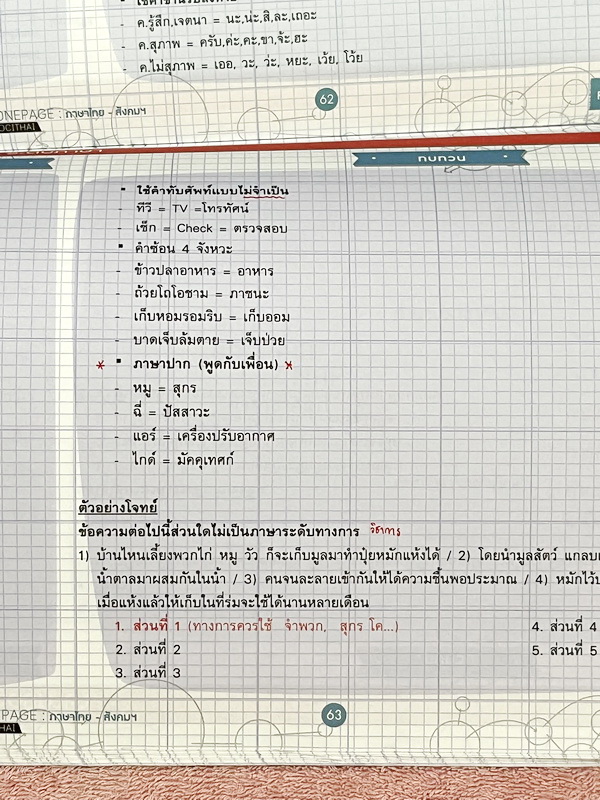 - ค.รู้สึก,เจตนา = นะ,น่ะ,สิ,ละ,เถอะ
- ค.สุภาพ = ครับ,ค่ะ,คะ,ขา,จ้ะ,ฮะ
- ค.ไม่สุภาพ = เออ, วะ, ว่ะ, หยะ, เว้ย, โว้ย
62
ONEPAGE : ภาษาไทย - สังคมฯ
OCITHAI
ทบทวน
▪ ใช้คำทับศัพท์แบบไม่จำเป็น
- ทีวี = TV =โทรทัศน์
- เช็ก = Check = ตรวจสอบ
▪ คำซ้อน 4 จังหวะ
- ข้าวปลาอาหาร = อาหาร
- ถ้วยโถโอชาม = ภาชนะ
- เก็บหอมรอมริบ = เก็บออม
- บาดเจ็บล้มตาย = เจ็บป่วย
* ▪ ภาษาปาก (พูดกับเพื่อน) *
- หมู = สุกร
- ฉี่ = ปัสสาวะ
- แอร์ = เครื่องปรับอากาศ
- ไกด์ = มัคคุเทศก์
ตัวอย่างโจทย์
ข้อความต่อไปนี้ส่วนใดไม่เป็นภาษาระดับทางการ วิชาการ
1) บ้านไหนเลี้ยงพวกไก่ หมู วัว ก็จะเก็บมูลมาทำปุ๋ยหมักแห้งได้ / 2) โดยนำมูลสัตว์ แกลบ
น้ำตาลมาผสมกันในน้ำ / 3) คนจนละลายเข้ากันให้ได้ความชื้นพอประมาณ / 4) หมักไว้
เมื่อแห้งแล้วให้เก็บในที่ร่มจะใช้ได้นานหลายเดือน
1. ส่วนที่ 1 (ทางการควรใช้ จำพวก, สุกร โค...) 4. ส่วนที่ 4
2. ส่วนที่ 2 5. ส่วนที่ 5
3. ส่วนที่ 3
63
PAGE : ภาษาไทย - สังคมฯ
HAI